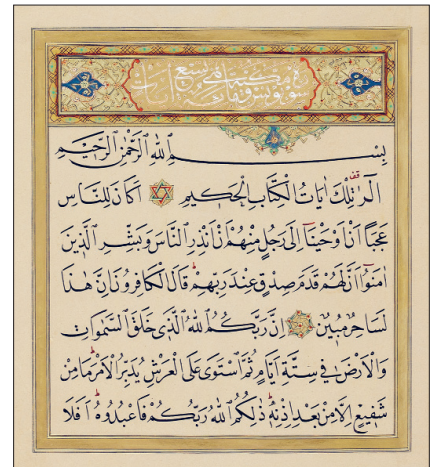 سورة يونس مكية
بِسْمِ اللهِ الرَّحْمٰنِ الرَّحِيمِ
الٓرٰ تِلْكَ اٰيَاتُ الْكِتَابِ الْحَكِيمِ اَكَانَ لِلنَّاسِ
عَجَبًا اَنْ اَوْحَيْنَٓا اِلٰى رَجُلٍ مِنْهُمْ اَنْ اَنْذِرِ النَّاسَ وَبَشِّرِ الَّذِينَ
اٰمَنُٓوا اَنَّ لَهُمْ قَدَمَ صِدْقٍ عِنْدَ رَبِّهِمْ قَالَ الْكَافِرُونَ اِنَّ هٰذَا
لَسَاحِرٌ مُبِينٌ اِنَّ رَبَّكُمُ اللهُ الَّذِي خَلَقَ السَّمٰوَاتِ
وَالْاَرْضَ فِي سِتَّةِ اَيَّامٍ ثُمَّ اسْتَوٰى عَلَى الْعَرْشِ يُدَبِّرُ الْاَمْرَ مَا مِنْ
شَفِيعٍ اِلَّا مِنْ بَعْدِ اِذْنِهِ ذٰلِكُمُ اللهُ رَبُّكُمْ فَاعْبُدُوهُ اَفَلَا